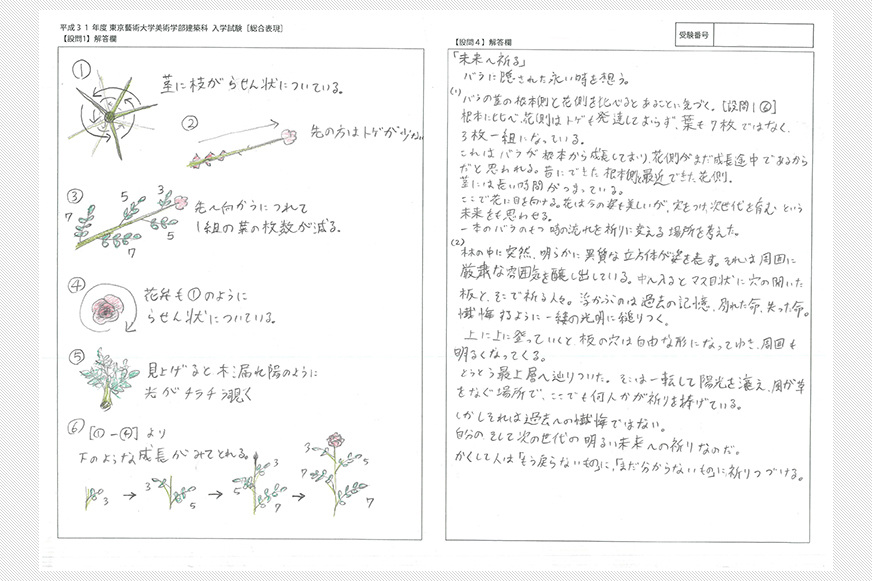 平成３１年度 東京藝術大学美術学部建築科 入学試験［総合表現］
【設問1】解答欄
①
茎に枝がらせん状についている。
②
先の方はトゲが少ない
③
7
5
3
7
5
先へ向かうにつれて
1組の葉の枚数が減る。
④
花弁も①のように
らせん状についている。
⑤
見上げると木漏れ陽のように
光がチラチラ覗く
⑥
[①-④]より
下のような成長がみてとれる。
3
→
3
5
→
3
5
7
→
3
5
7
7
【設問４】解答欄
受験番号
「未来へ祈る」
バラに隠された永い時を想う。
(1)
バラの茎の根本側と花側を比べるとあることに気づく。[設問1⑥]
根本に比べ、花側はトゲも発達しておらず、葉も7枚ではなく、
3枚一組になっている。
これはバラが根本から成長しており、花側がまだ成長途中であるから
だと思われる。昔にできた根本側と最近できた花側。
茎には長い時間がつまっている。
ここで花に目を向ける。花は今の姿も美しいが、実をつけ、次世代を育むという
未来をも思わせる。
一本のバラのもつ時の流れを祈りに変える場所を考えた。
(2)
林の中に突然、明らかに異質な立方体が姿を表す。それは周囲に
厳粛な雰囲気を醸し出している。中へ入るとマス目状に穴の開いた
板と、そこで祈る人々。浮かぶのは過去の記憶、別れた命、失った命。
懺悔するように一縷の光明に縋りつく。
上に上に登っていくと板の穴は自由な形になってゆき、周囲も
明るくなってくる。
とうとう最上層へ辿りついた。そこは一転して陽光を湛え、風が草
をなぐ場所で、ここでも何人かが祈りを捧げている。
しかしそれは過去への懺悔ではない。
自分の、そして次の世代の明るい未来への祈りなのだ。
かくして人は「もう戻らないもの」に、「まだ分からないもの」に祈りつづける。